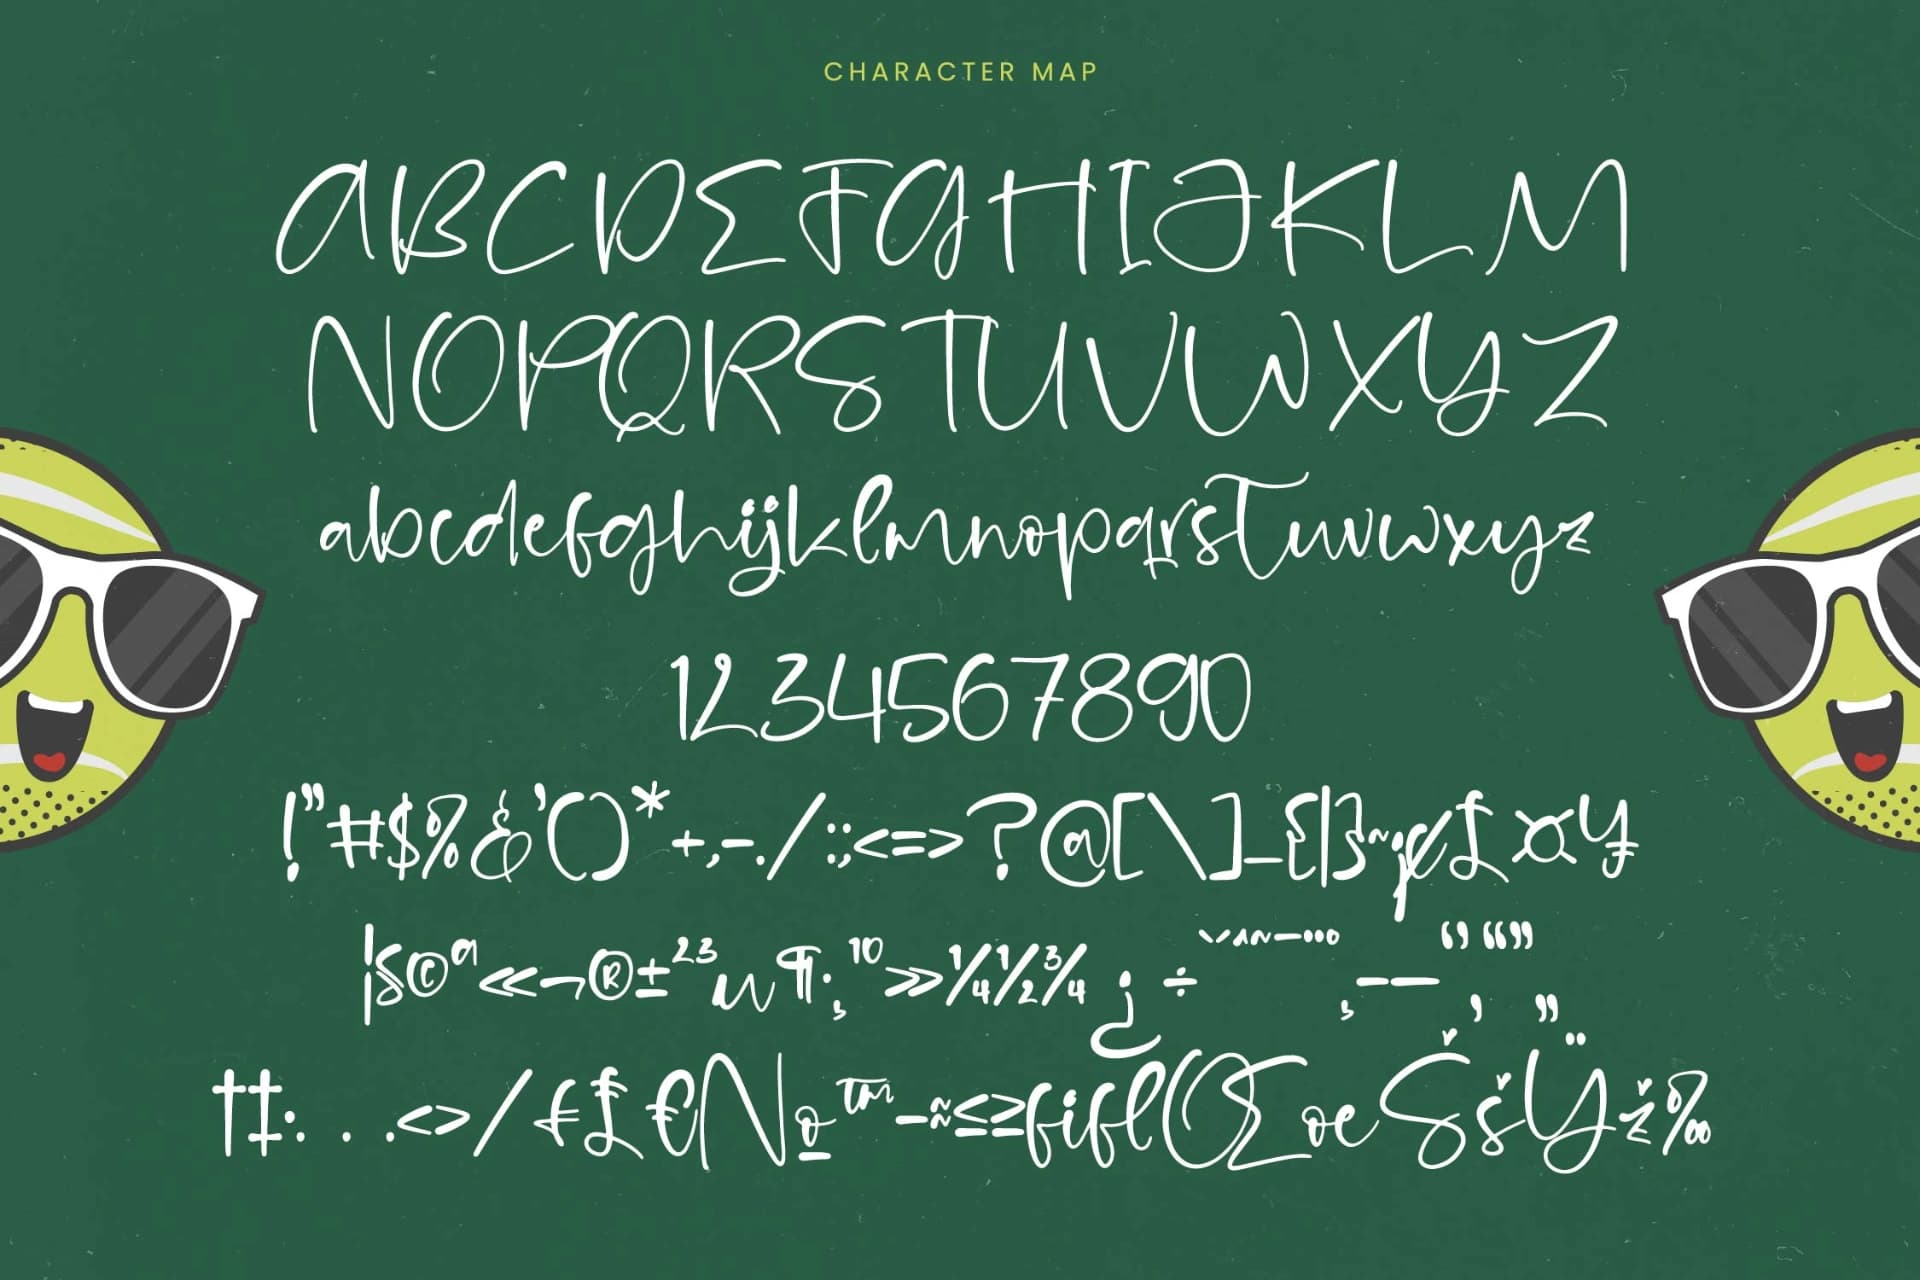 CHARACTER MAP
ABCDEFGHIJKLM
NOPQRSTUVWXYZ
abcdefghijklmnopqrstuvwxyz
1234567890
!"#$%&'()*+,-./:;<=>?@[\]_{|}~¡¢£¤¥
¦§©ª«¬®±²³µ¶·¸¹º»¼½¾¿÷ˇˆ˜¯…¸–—‘’“”‚„
†‡•...‹›⁄₣₤€№™−≈≤≥fiflŒœŠšŸž‰